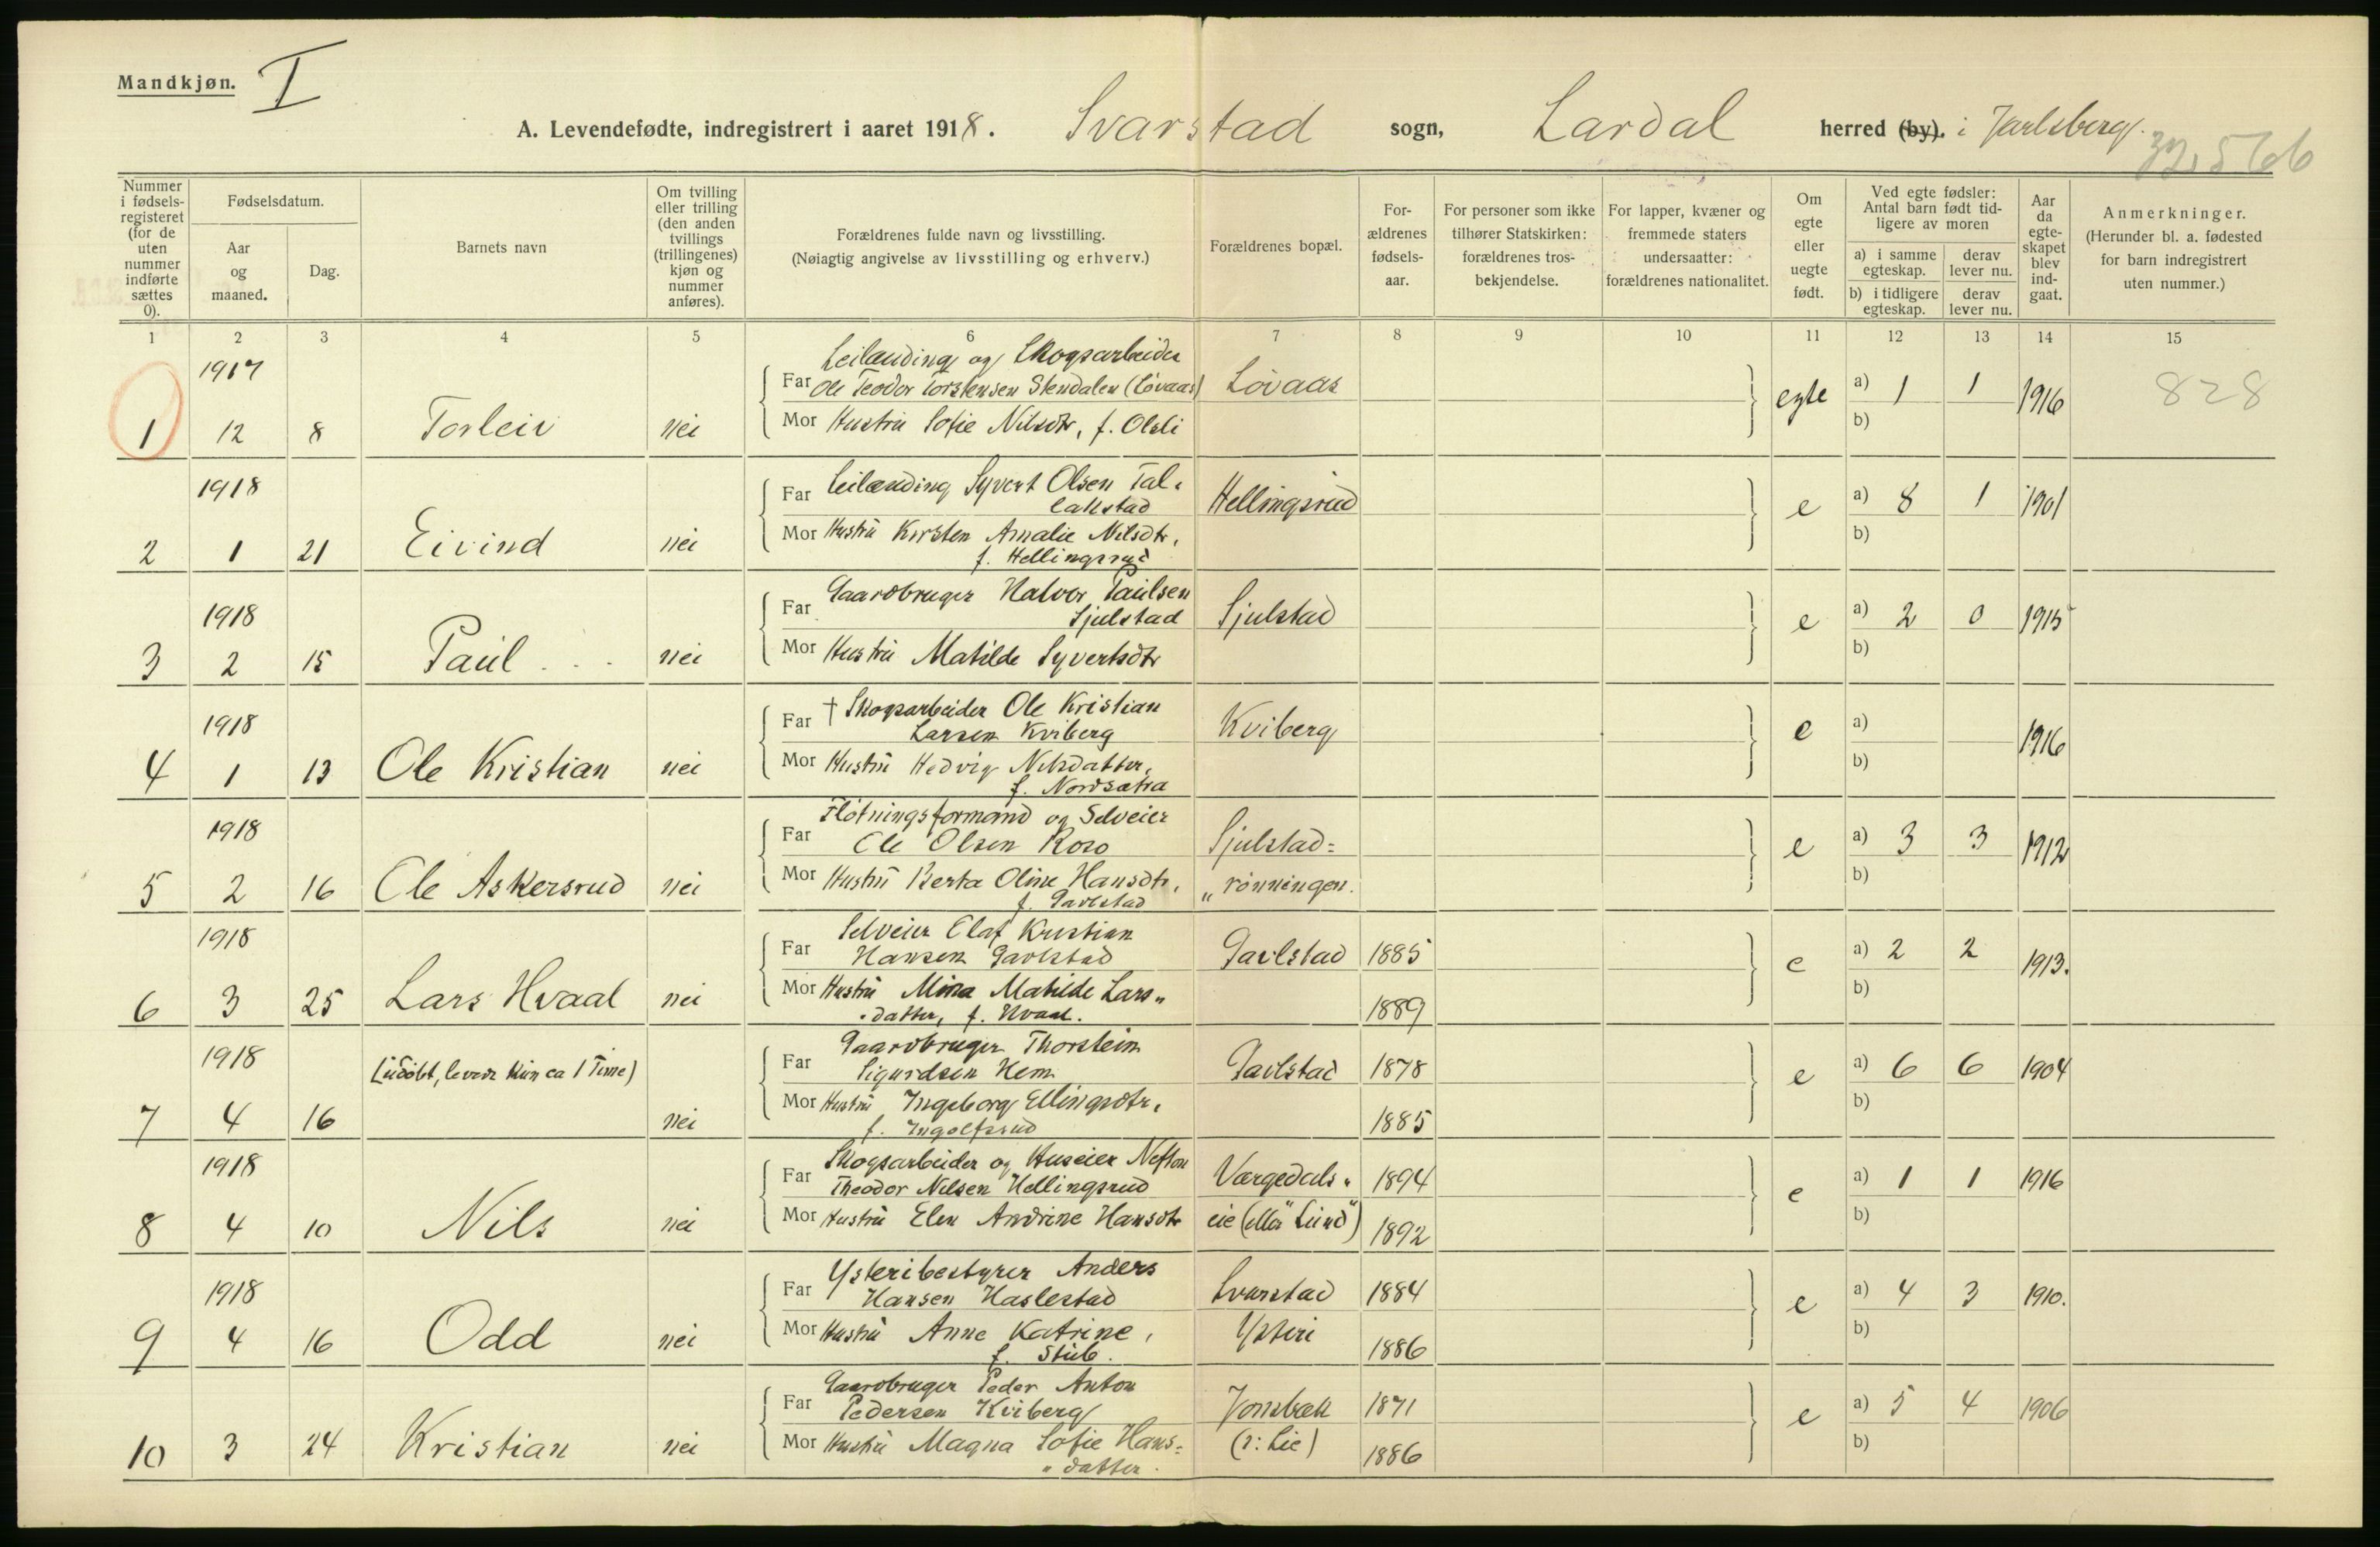 Mandkjøn. I
A. Levendefødte, indregistrert i aaret 1918. Svarstad sogn, Lardal herred (by). i Jarlsberg.
Nummer i fødsels-registeret (for de uten nummer indførte sættes 0).
Fødselsdatum.
Aar og maaned.
Dag.
Barnets navn
Om tvilling eller trilling (den anden tvillings (trillingenes) kjøn og nummer anføres).
Forældrenes fulde navn og livsstilling.
(Nøiagtig angivelse av livsstilling og erhverv.)
Forældrenes bopæl.
For-ældrenes fødsels-aar.
For personer som ikke tilhører Statskirken: forældrenes tros-bekjendelse.
For lapper, kvæner og fremmede staters undersaatter: forældrenes nationalitet.
Om egte eller uegte født.
Ved egte fødsler: Antal barn født tid-ligere av moren
a) i samme egteskap. derav lever nu.
b) i tidligere egteskap. derav lever nu.
Aar da egte-skapet blev ind-gaat.
Anmerkninger.
(Herunder bl. a. fødested for barn indregistrert uten nummer.)
1 2 3 4 5 6 7 8 9 10 11 12 13 14 15
1917 Leilænding og Skogsarbeider
Far Ole Teodor Torstensen Stendalen (Lövaas) Lövaas egte a) 1 1 1916 828
1 12 8 Torleiv nei Mor Hustru Sofie Nilsdtr, f. Olsli b)
1918 Far Leilænding Syvert Olsen Tal-
lakstad Hellingsrud e a) 8 1 1901
2 1 21 Eivind nei Mor Hustru Kirsten Amalie Nilsdtr, b)
f. Hellingsrud
1918 Far Gaardbruger Halvor Paulsen
Sjulstad Sjulstad e a) 2 0 1915
3 2 15 Paul nei Mor Hustru Matilde Syvertsdtr b)
1918 Far † Skogsarbeider Ole Kristian
Larsen Kviberg Kviberg e a) 1916
4 1 13 Ole Kristian nei Mor Hustru Hedvig Nilsdatter, b)
f. Nordsætra
1918 Flötningsformand og Selveier
Far Ole Olsen Sjulstad= e a) 3 3 1912
5 2 16 Ole Askersrud nei Mor Hustru Berta Oline Hansdtr, „rönningen. b)
f. Gavlstad
1918 Selveier Olaf Kristian
Far Hansen Gavlstad Gavlstad 1885 e a) 2 2 1913.
6 3 25 Lars Hvaal nei Mor Hustru Mina Matilde Lars„ 1889 b)
datter, f. Hvaal.
1918 (udöbt, levede kun ca 1 Time) Gaardbruger Thorstein
Far Sigurdsen Hem Gavlstad 1878 e a) 6 6 1904
7 4 16 nei Mor Hustru Ingeborg Ellingsdtr, 1885 b)
f. Ingolfsrud
1918 Skogsarbeider og Huseier Nefton
Far Theodor Nilsen Hellingsrud Vargedals- 1894 e a) 1 1 1916
8 4 10 Nils nei Mor Hustru Elen Andrine Hansdtr eie (eller "Lund") 1892 b)
1918 Ysteribestyrer Anders
Far Hansen Haslestad Svarstad 1884 e a) 4 3 1910.
9 4 16 Odd nei Mor Hustru Anne Katrine, Ysteri 1886 b)
f. Stub.
Gaardbruger Peder Anton
Far Pedersen Kviberg Jonsbæk 1871 e a) 5 4 1906
10 3 24 Kristian nei Mor Hustru Magna Sofie Hans= (ɔ: Lie) 1886 b)
„datter.